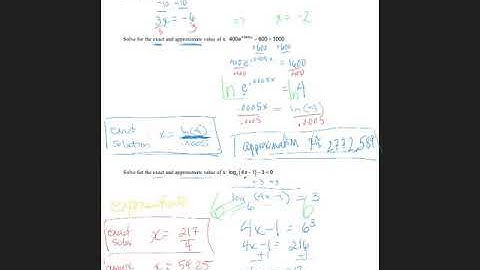 -10 -10
3x = -6
3 3
=> x = -2
Solve for the exact and approximate value of x: 400e^.0005x - 600 = 1000
+600 +600
400e^.0005x = 1600
400 400
ln e^.0005x = ln 4
.0005x = ln(4)
.0005 .0005
exact solution x = ln(4)/.0005
approximation x ≈ 2772.589
Solve for the exact and approximate value of x: log₆(4x - 1) - 3 = 0
+3 +3
log₆(4x-1) = 3
exponential
6 6
4x-1 = 6³
4x-1 = 216
+1 +1
exact soln x = 217/4
x = 54.25